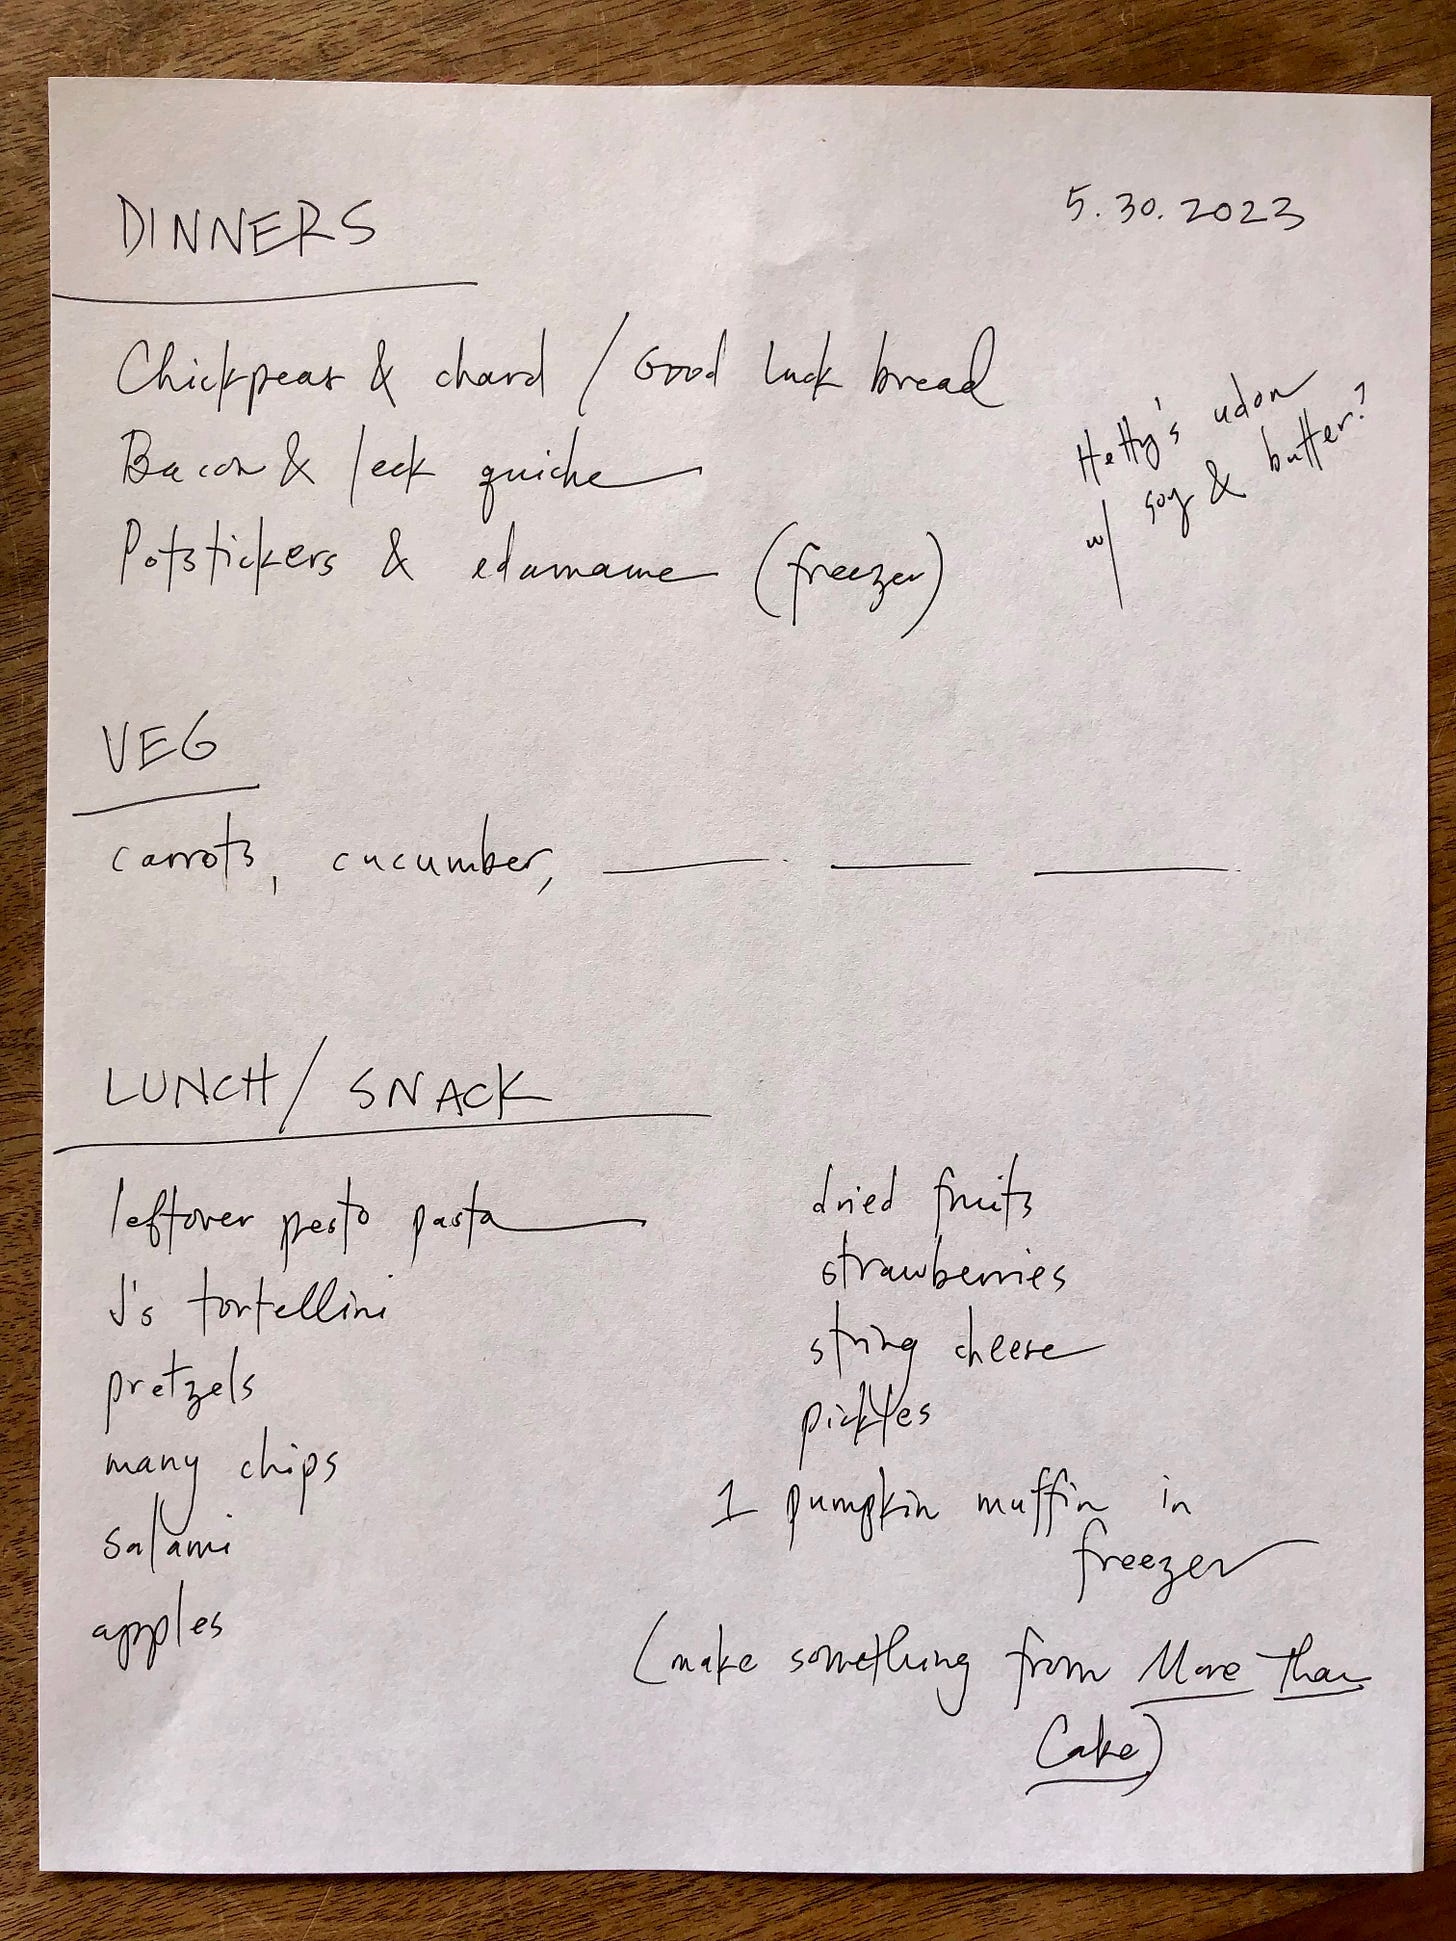 DINNERS
5.30.2023
Chickpeas & chard / Good luck bread
Bacon & leek quiche
Potstickers & edamame (freezer)
Hetty's udon
w/ soy & butter?
VEG
carrots, cucumber,
LUNCH / SNACK
leftover pesto pasta
J's tortellini
pretzels
many chips
salami
apples
dried fruits
strawberries
string cheese
pickles
1 pumpkin muffin in
freezer
(make something from More Than
Cake)